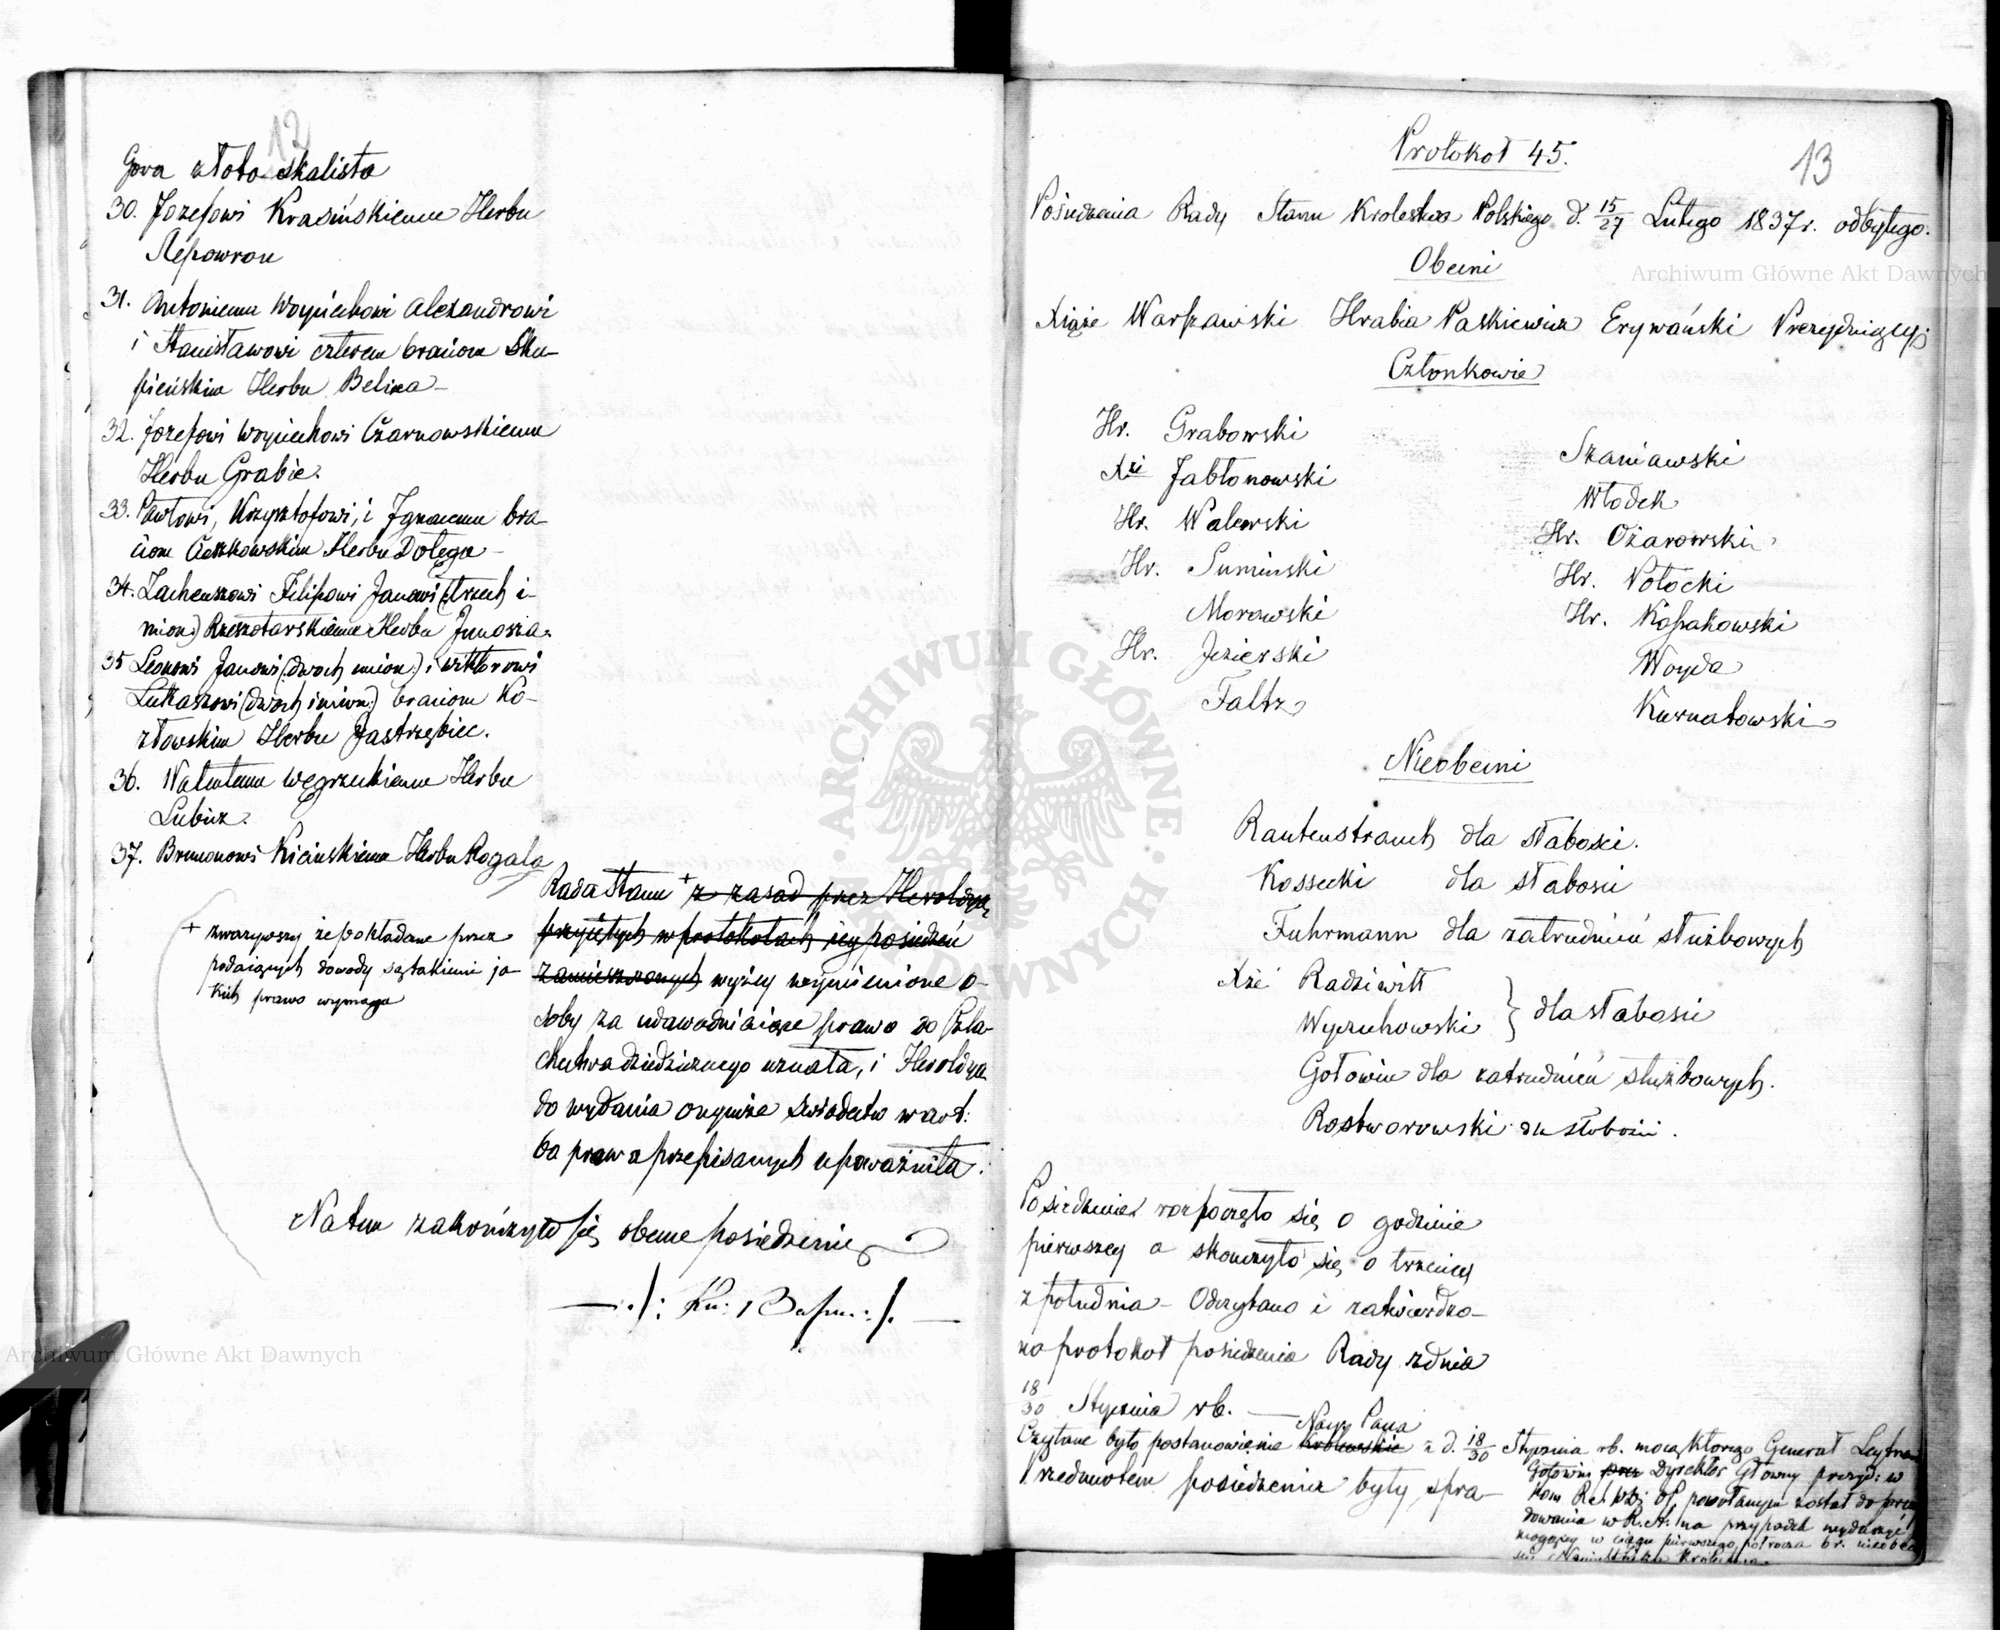 12
Gora złoto skalista
30. Jozefowi Krasińskiemu Herbu
Slepowron
31. Antoniemu Woyciechowi Alexandrowi
i Stanisławowi czterem braciom Sku-
pieńskim Herbu Belina -
32. Jozefowi Woyciechowi Czarnowskiemu
Herbu Grabie.
33. Pawłowi, Krzysztofowi, i Ignacemu bra-
ciom Cieszkowskim Herbu Dołęga -
34. Zacheuszowi Filipowi Janowi (trzech i-
mion) Rzeszotarskiemu Herbu Junosza.
35 Leonowi Janowi (dwoch imion:) i Wiktorowi
Łukaszowi (dwoch imion:) braciom Ko-
złowskim Herbu Jastrzębiec.
36. Walentemu Węgrzeckiemu Herbu
Lubicz.
37. Brunonowi Kicińskiemu Herbu Rogala
Rada Stanu + z zasad przez Heroldyą
przyiętych w protokołach iey posiedzeń
zamieszczonych wyżey wymienione o-
soby za udawadniaiące prawo do Szla-
chectwa dziedzicznego uznała, i Heroldya
do wydania onymże świadectw w art:
ba prawa przepisanych upoważniła.
+ zważywszy że pokładane przez
podaiących dowody są takiemi ja-
kich prawo wymaga
Na tem zakończyło się obecne posiedzenie
13
Protokoł 45.
Posiedzenia Rady Stanu Krolestwa Polskiego d. 15/27 Lutego 1837 r. odbytego.
Obecni
Xiąże Warszawski Hrabia Paskiewicz Erywański Prezyduiący
Członkowie
Hr. Grabowski
Xże Jabłonowski
Hr. Walewski
Hr. Suminski
Morawski
Hr. Jezierski
Faltz
Szaniawski
Włodek
Hr. Ożarowski
Hr. Potocki
Hr. Kossakowski
Woyda
Kurnatowski
Nieobecni
Rautenstrauch dla słabości.
Kossecki dla słabości
Fuhrmann dla zatrudnień służbowych
Xże Radziwiłł
Wyczechowski } dla słabości
Gołowin dla zatrudnień służbowych.
Rostworowski dla słabości.
Posiedzenie rozpoczęło się o godzinie
pierwszey a skonczyło się o trzeciey
z południa - Odczytano i zatwierdzo-
no protokoł posiedzenia Rady z dnia
18/30 Stycznia rb. —
Nayj Pana
Czytane było postanowienie Krolewskie z d. 18/30 Stycznia rb. mocą ktorego Generał Leytnant
Gołowin przez Dyrektor Głowny prezyd: w
Kom R. S. W. D. i OP, powołanym został do prezy
dowania w R. A. na przypadek wydarzyć
mogącey w ciągu pierwszego połrocza br. nieobecno
ści Namiestnika Krolestwa.
Przedmiotem posiedzenia były, spra-
Archiwum Główne Akt Dawnych
Archiwum Główne Akt Dawnych
ARCHIWUM GŁÓWNE AKT DAWNYCH